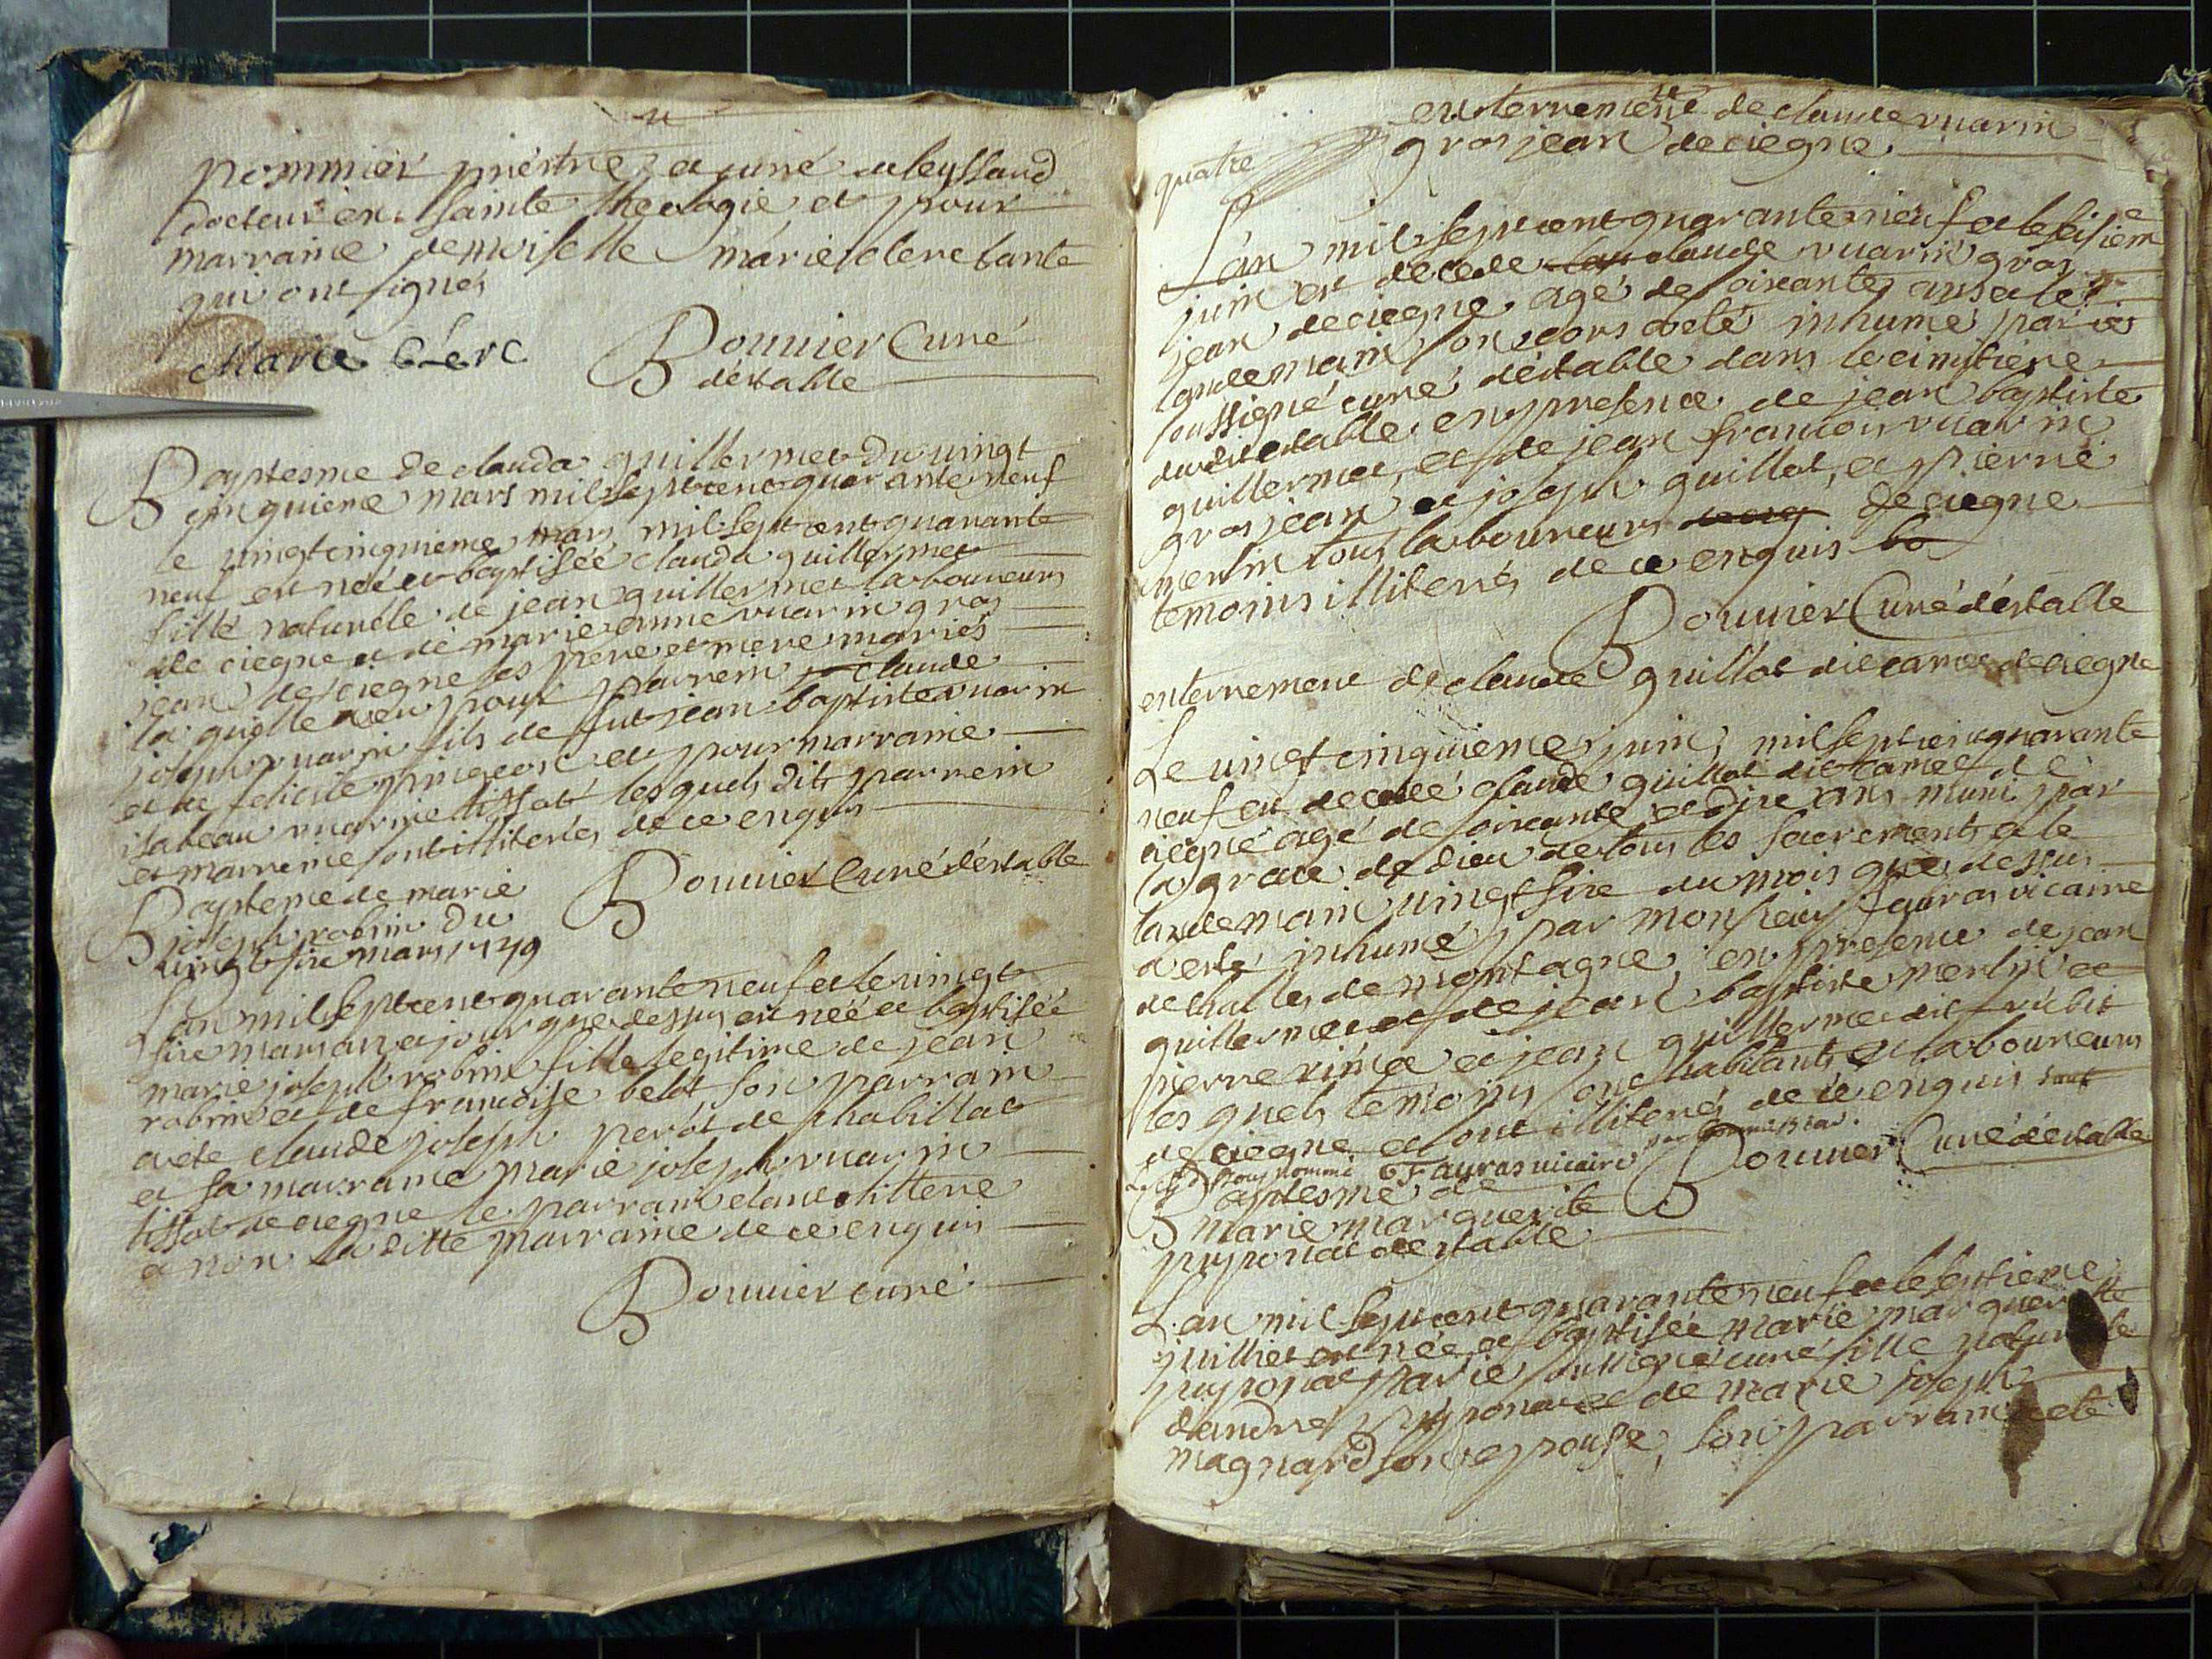 pommier prestre et curé a leyssard
docteur en sainte theologie, et pour
marraine demoiselle marie clerc tante
qui ont signés
Marie Clerc
Bouuier Curé
déstable
Baptesme de clauda guillermet Du vingt
cinquieme mars mil sept cent quarante neuf
le vingt cinquieme mars mil sept cent quarante
neuf est née et baptisée clauda guillermet
fille naturele de jean guillermet laboureurs
de ciegne et de marie anne vuarin gros
jean de ciegne ses pere et mere mariés
la quelle a eu pour parrein claude
joseph vuarin fils de fut jean baptiste vuarin
et de felicité pingeon et pour marraine
isabeau vuarin tissot les quels dits parrein
et marreine sont illiterés de ce enquis
Bouuier Curé déstable
Bapteme de marie
joseph robin Du
vingt sixe mars 1749
L'an mil sept cent quarante neuf et le vingt
sixe mars an et jour que dessus est née et baptisée
marie joseph robin fille legitime de jean
robin et de francoise belot, son parrain
a eté claude joseph perôt de chabillat
et sa marraine marie joseph vuarin
tissot de ciegne le parrain etant littere
et non la ditte marraine de ce enquis
Bouuier curé
enterrement de claude vuarin
gros jean de ciegne
quatre
L'an mil sept cent quarante neuf et le sisieme
juin est decede claude vuarin gros
jean de ciegne agé de soixante ans et le
landemain son corps a eté inhumé par
soussigné curé déstable dans le cimetiere
dudit estable en presence de jean baptiste
guillermet, et de jean francois vuarin
gros jean et joseph guillot, et pierre
merlin tous laboureurs de ciegne
temoins illiterés de ce enquis
Bouuier Curé déstable
enterrement de claude guillot dit camet de ciegne
Le vingt cinquieme juin mil sept cent quarante
neuf est decedé claude guillot dit camet de
ciegne agé de soixante et dix ans muni par
la grace de dieu de tous les sacrements et le
landemain vingt sixe du mois que dessus
a esté inhumé par monsieur fauras vicaire
de challes de montagne, en presence de jean
guillermet et de jean baptiste merlin et
pierre et jean guillermet dit rubit
les quels temoins sont habitants et laboureurs
de ciegne et ont illiterés de ce enquis
Fauras vicaire
Bouuier Curé déstable
Baptesme de
marie marguerite
puyponat destable
L'an mil sept cent quarante neuf et le septieme
juillet est née et baptisée marie marguerite
puyponat par ie soussigné curé fille naturele
d'andre puyponat et de marie joseph
magnard son epouse, son parrain a eté